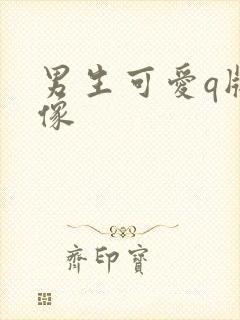 男生可愛q版
像
齊印寶